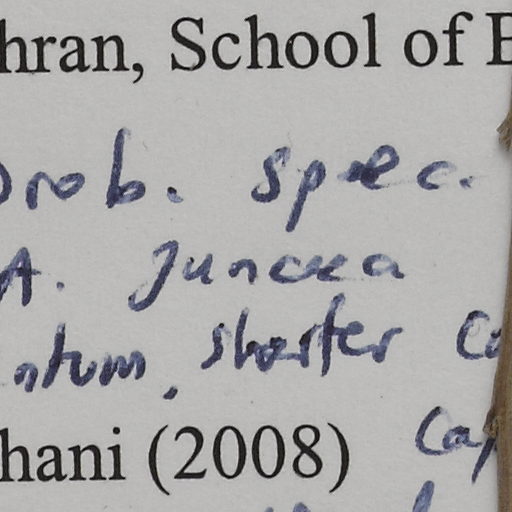 hran, School of E
prob. spec.
A. Juncea
ntum, shorter
hani (2008)